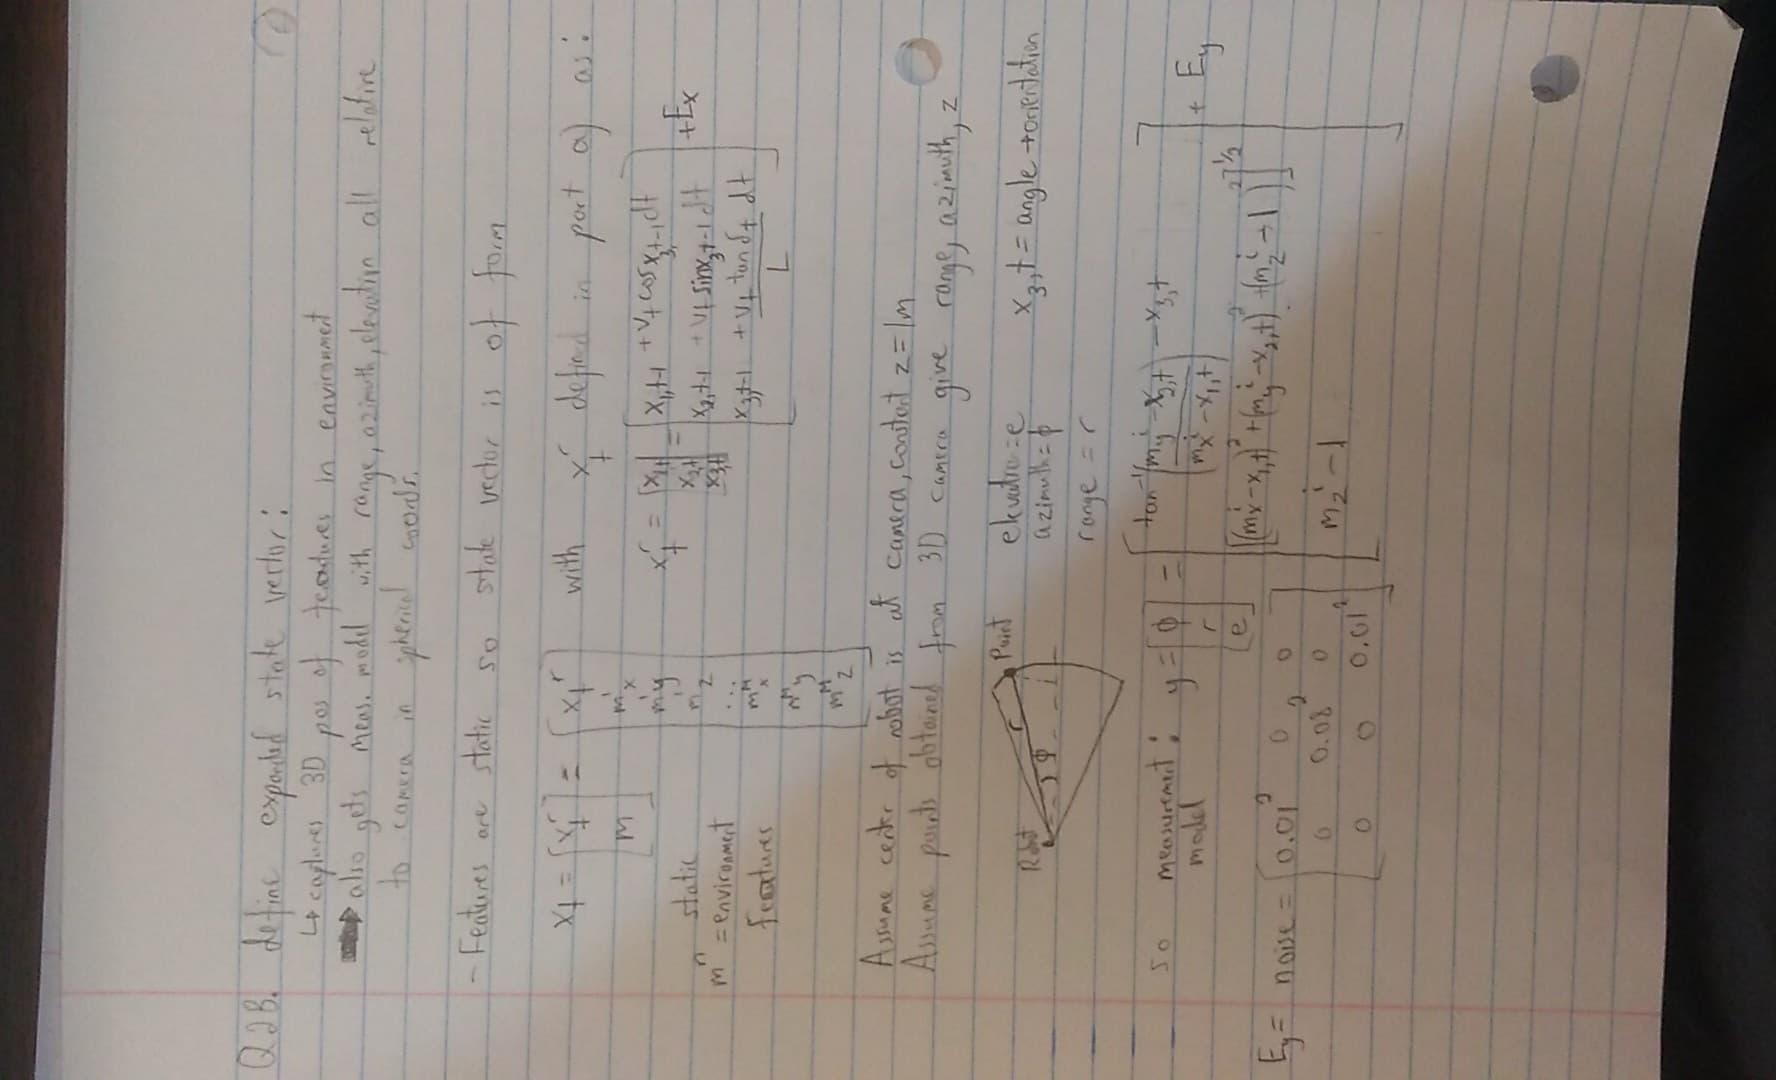 Q2B. define expanded state vector:
↳ captures 3D pos of features in environment
also gets meas. model with range, azimuth, elevation all relative
to camera in spherical coords.
- Features are static so state vector is of form
x_t = [x_t^r; m] = [x_t^r; m_x^1; m_y^1; m_z^1; ...; m_x^M; m_y^M; m_z^M] with x_t^r defined in part a) as:
x_t^r = [x_1,t; x_2,t; x_3,t] = [x_1,t-1 + v_t cos x_3,t-1 dt; x_2,t-1 + v_t sin x_3,t-1 dt; x_3,t-1 + v_t tan δ_t dt / L] + E_x
m^n = static environment features
Assume center of robot is at camera, constant z=1m
Assume points obtained from 3D camera give range, azimuth, z
Robot r φ Point
elevation=e x_3,t = angle + orientation
azimuth=φ
range = r
so measurement model: y = [φ; r; e] = [tan^-1((m_y^i - x_2,t)/(m_x^i - x_1,t)) - x_3,t; [(m_x^i - x_1,t)^2 + (m_y^i - x_2,t)^2 + (m_z^i - 1)^2]^1/2; m_z^i - 1] + E_y
E_y = noise = [0.01^2 0 0; 0 0.08^2 0; 0 0 0.01^2]